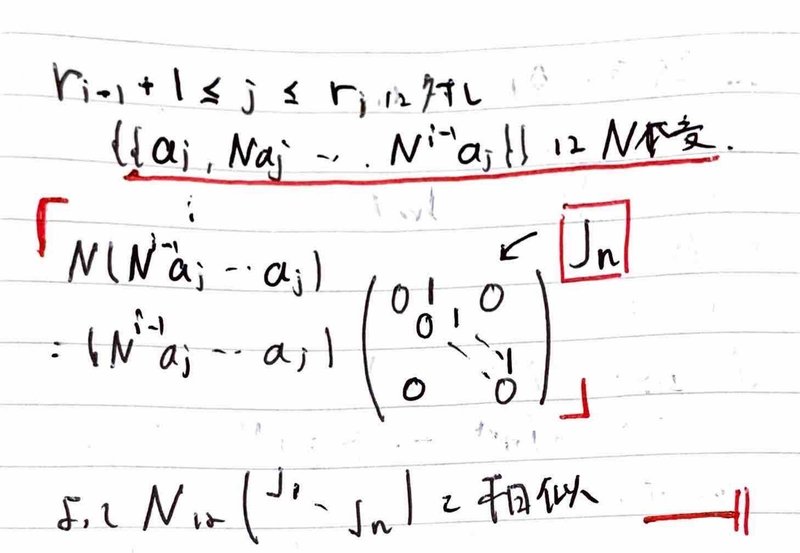 r_{i-1} + 1 ≤ j ≤ r_i に対し
{{a_j, Na_j … N^{i-1}a_j}} は N不変.
「 N(N^{i-1}a_j … a_j)
= (N^{i-1}a_j … a_j) (0 1 0 0 1 ⋱ 1 0 0) ← J_n 」
よって N は (J_1 ⋱ J_n) と相似